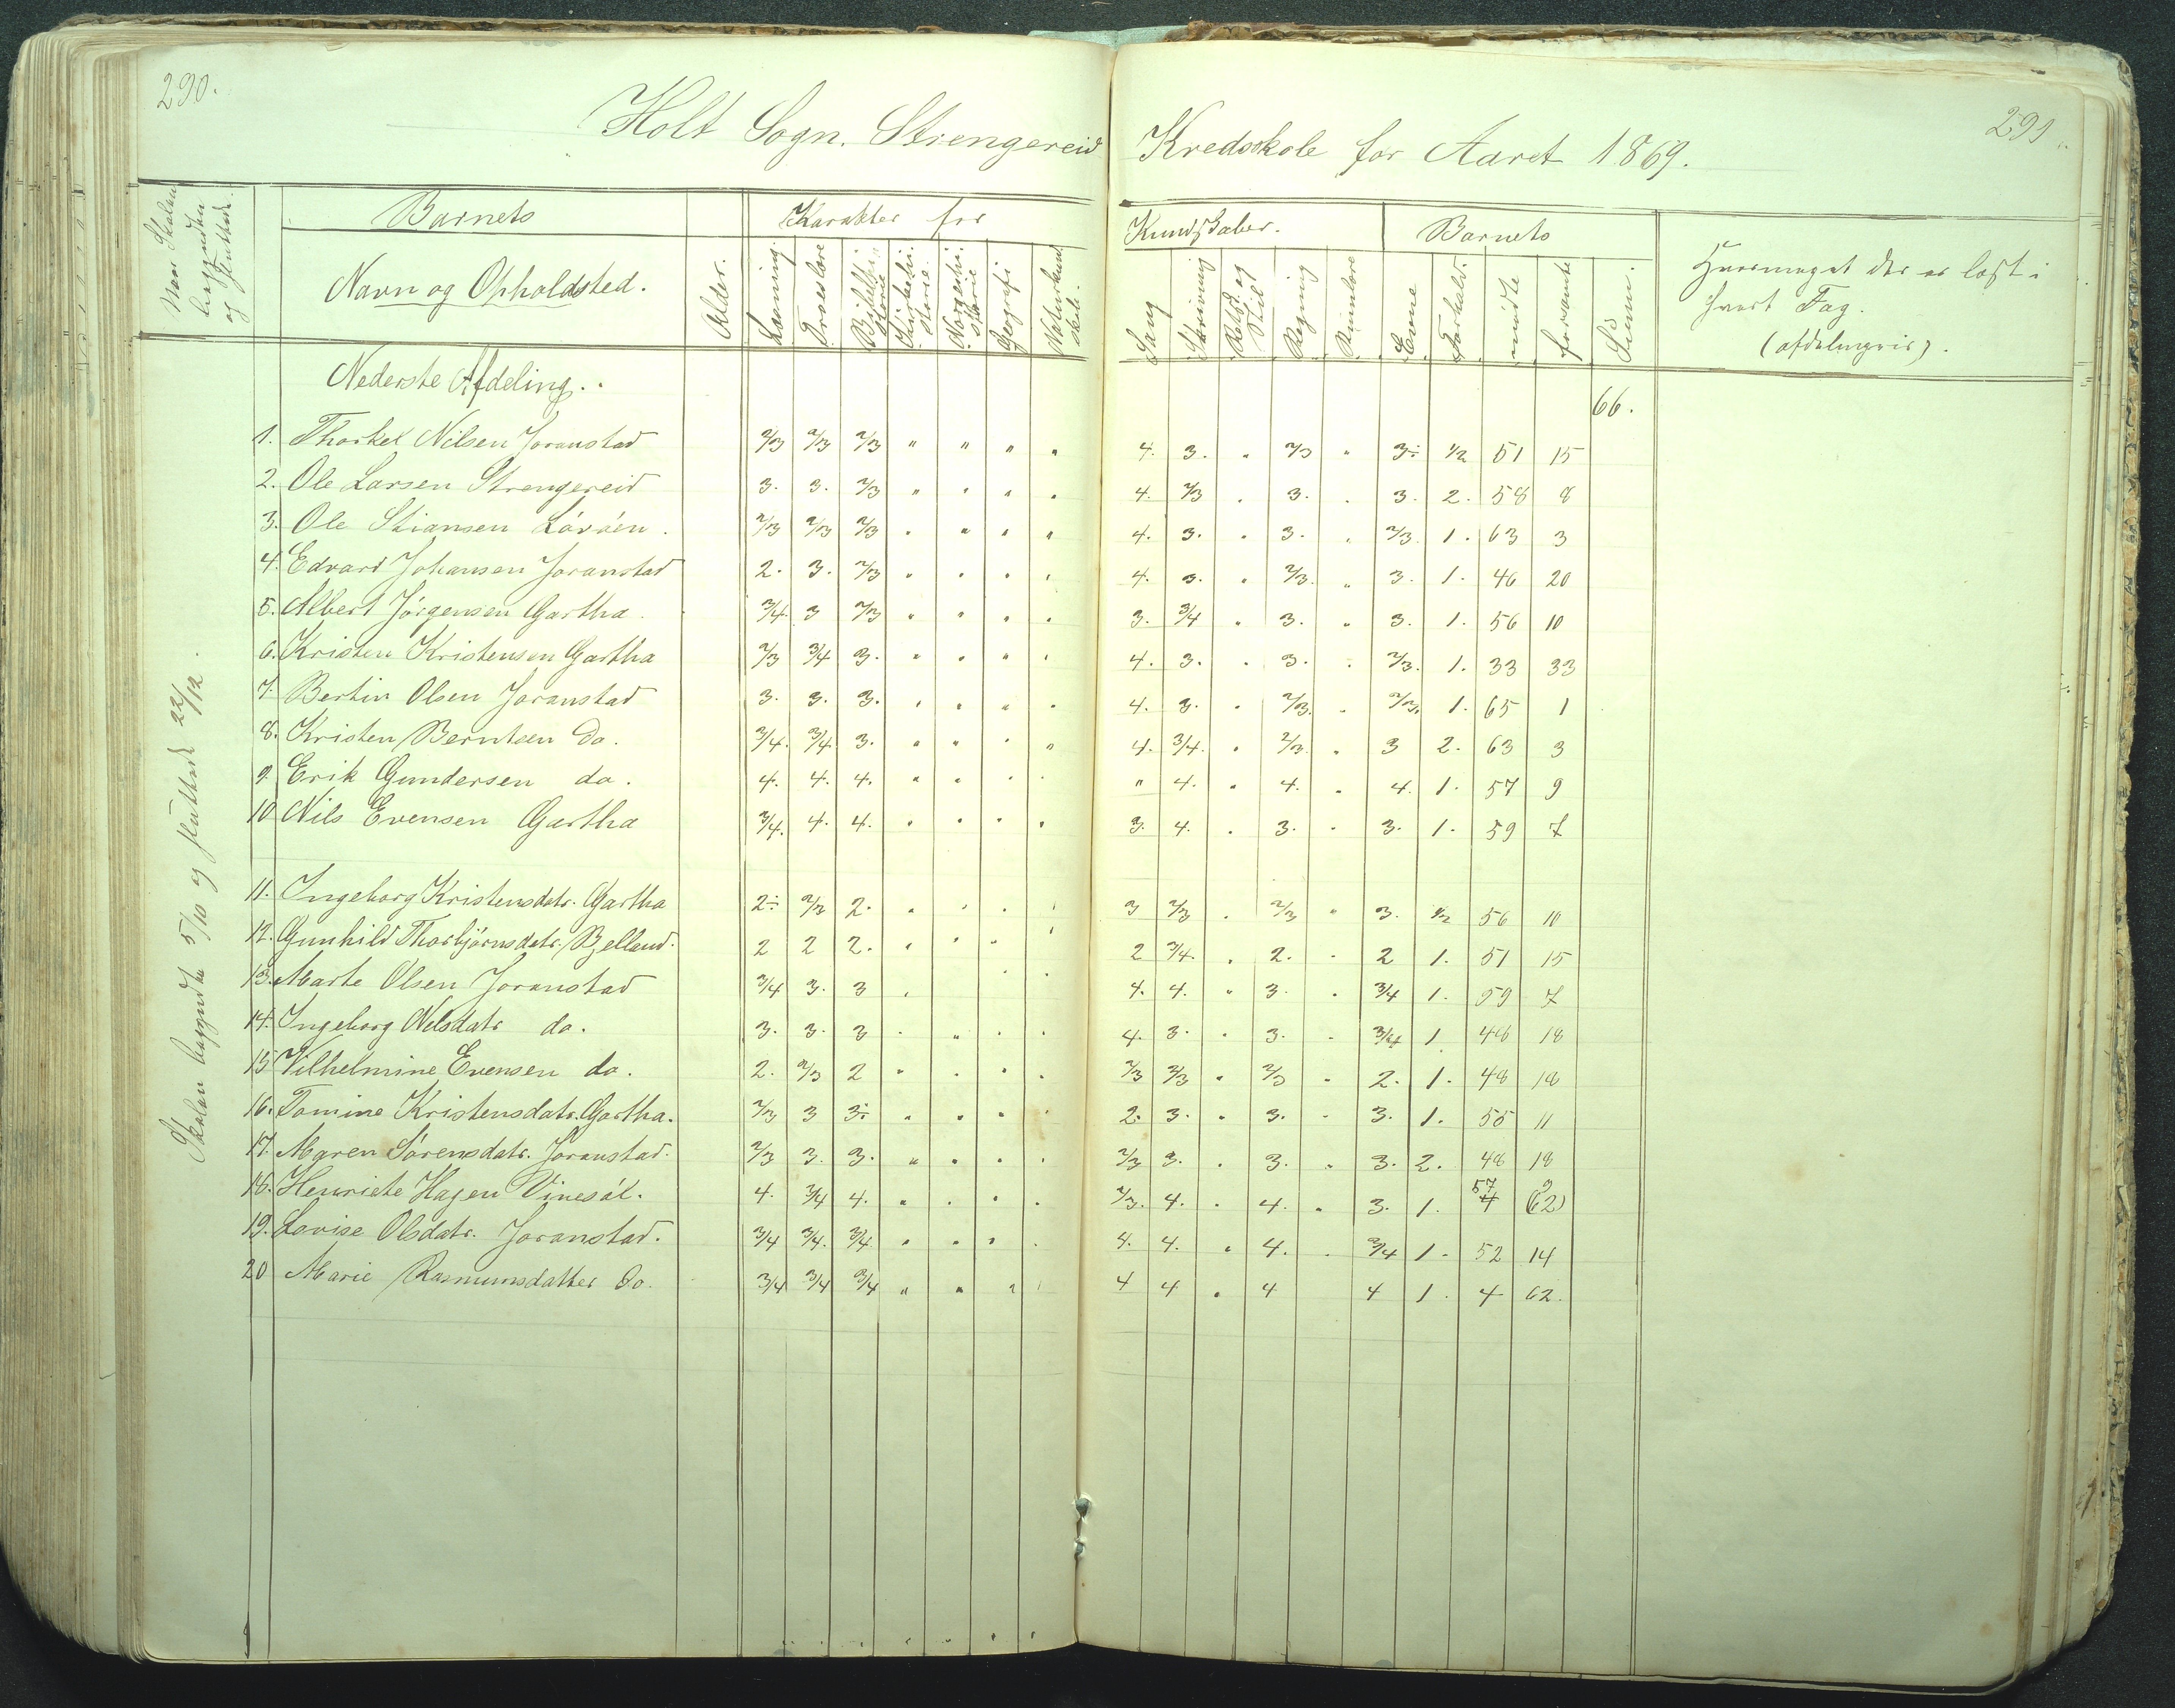 290.
291.
Holt Sogn. Strengereid Kredsskole for Aaret 1869.
Naar Skolen begyndte og sluttede.
Barnets
Navn og Opholdsted.
Alder.
Karakter for
Kundskaber.
Læsning
Troeslære
Bibelhistorie
Kirkehistorie.
Norgeshistorie
Geografi
Naturkundskab.
Sang
Skrivning
Retsk. og Stil
Regning
Evne
Forhold.
mødte
forsømte
Barnets
Sum.
Hvormeget der er læst i
hvert Fag.
(afdelingvis).
Nederste Afdeling.
66.
1. Thorkel Nilsen Joranstad 2/3 2/3 2/3 " " " " 4. 3. " 2/3 " 3÷ 1/2 51 15
2. Ole Larsen Strengereid 3. 3. 2/3 " " " " 4. 2/3 " 3. " 3. 2. 58 8
3. Ole Stiansen 2/3 2/3 2/3 " " " " 4. 3. " 3. " 2/3 1. 63 3
4. Edvard Johansen Joranstad 2. 3. 2/3 " " " " 4. 3. " 2/3. " 3. 1. 46 20
5. Albert Jörgensen Gartha. 3/4 3 2/3 " " " " 3. 3/4 " 3. " 3. 1. 56 10
6. Kristen Kristensen Gartha 2/3 3/4 3. " " " " 4. 3. " 3. " 2/3. 1. 33 33
7. Bertin Olsen Joranstad 3. 3. 3. " " " " 4. 3. " 2/3. " 2/3. 1. 65 1
8. Kristen Berntsen Do. 3/4. 3/4. 3. " " " " 4. 3/4. " 2/3. " 3 2. 63 3
9. Erik Gundersen do. 4. 4. 4. " " " " " 4. " 4. " 4. 1. 57 9
10 Nils Evensen Gartha 3/4. 4. 4. " " " " 3. 4. " 3. " 3. 1. 59 7
11. Ingeborg Kristensdatr. Gartha 2÷ 2/3 2. " " " " 3 2/3 " 2/3 " 3. 1/2 56 10
12. Gunhild Thorbjörnsdatr. Bjelland. 2 2 2. " " " " 2 3/4. " 2. " 2 1. 51 15
13. Marte Olsen Joranstad 3/4 3. 3 " " " 4. 4. " 3. " 3/4 1. 59 7
14. Ingeborg Nilsdatr do. 3. 3. 3 " " " " 4. 3. " 3. " 3/4 1 48 18
15 Vilhelmine Evensen do. 2. 2/3 2 " " " " 2/3 2/3 " 2/3 " 2. 1. 48 18
16. Tomine Kristensdatr. Gartha. 2/3 3 3÷ " " " " 2. 3. " 3. " 3. 1. 55 11
17. Maren Sörensdatr. Joranstad. 2/3 3. 3. " " " " 2/3 3. " 3. " 3. 2. 48 18
18. Henriete Hagen 4. 3/4 4. " " " " 2/3. 4. " 4. " 3. 1. 57 4 9 (62)
19. Lovise Olsdatr. Joranstad. 3/4 3/4. 3/4 " " " " 4. 4. " 4. " 3/4 1. 52 14
20 Marie Rasmunsdatter Do. 3/4 3/4 3/4 " " " " 4 4 " 4 4 1. 4 62.
Skolen begyndte 5/10 og sluttede 22/12.